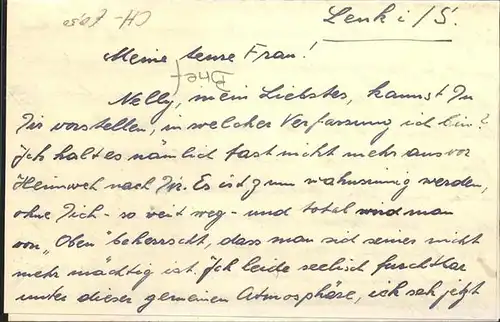 CH-
Lenk i/S.
Meine teure Frau!
Nelly, mein Liebstes, kannst Du
Dir vorstellen, in welcher Verfassung ich bin?
Ich halt es nämlich fast nicht mehr aus vor
Heimweh nach Dir. Es ist zum wahnsinnig werden,
ohne Dich - so weit weg - und total wird man
von „Oben" beherrscht, dass man sich seiner nicht
mehr mächtig ist. Ich leide seelisch furchtbar
unter dieser gemeinen Atmosphäre, ich seh jetzt